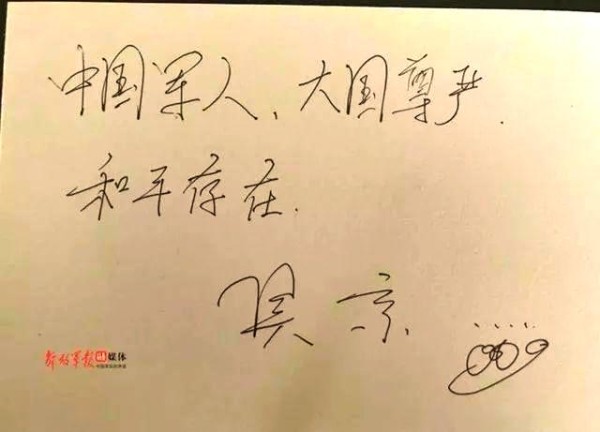 中国军人、大国尊严.
和平存在.
吴京
解放军报社媒体